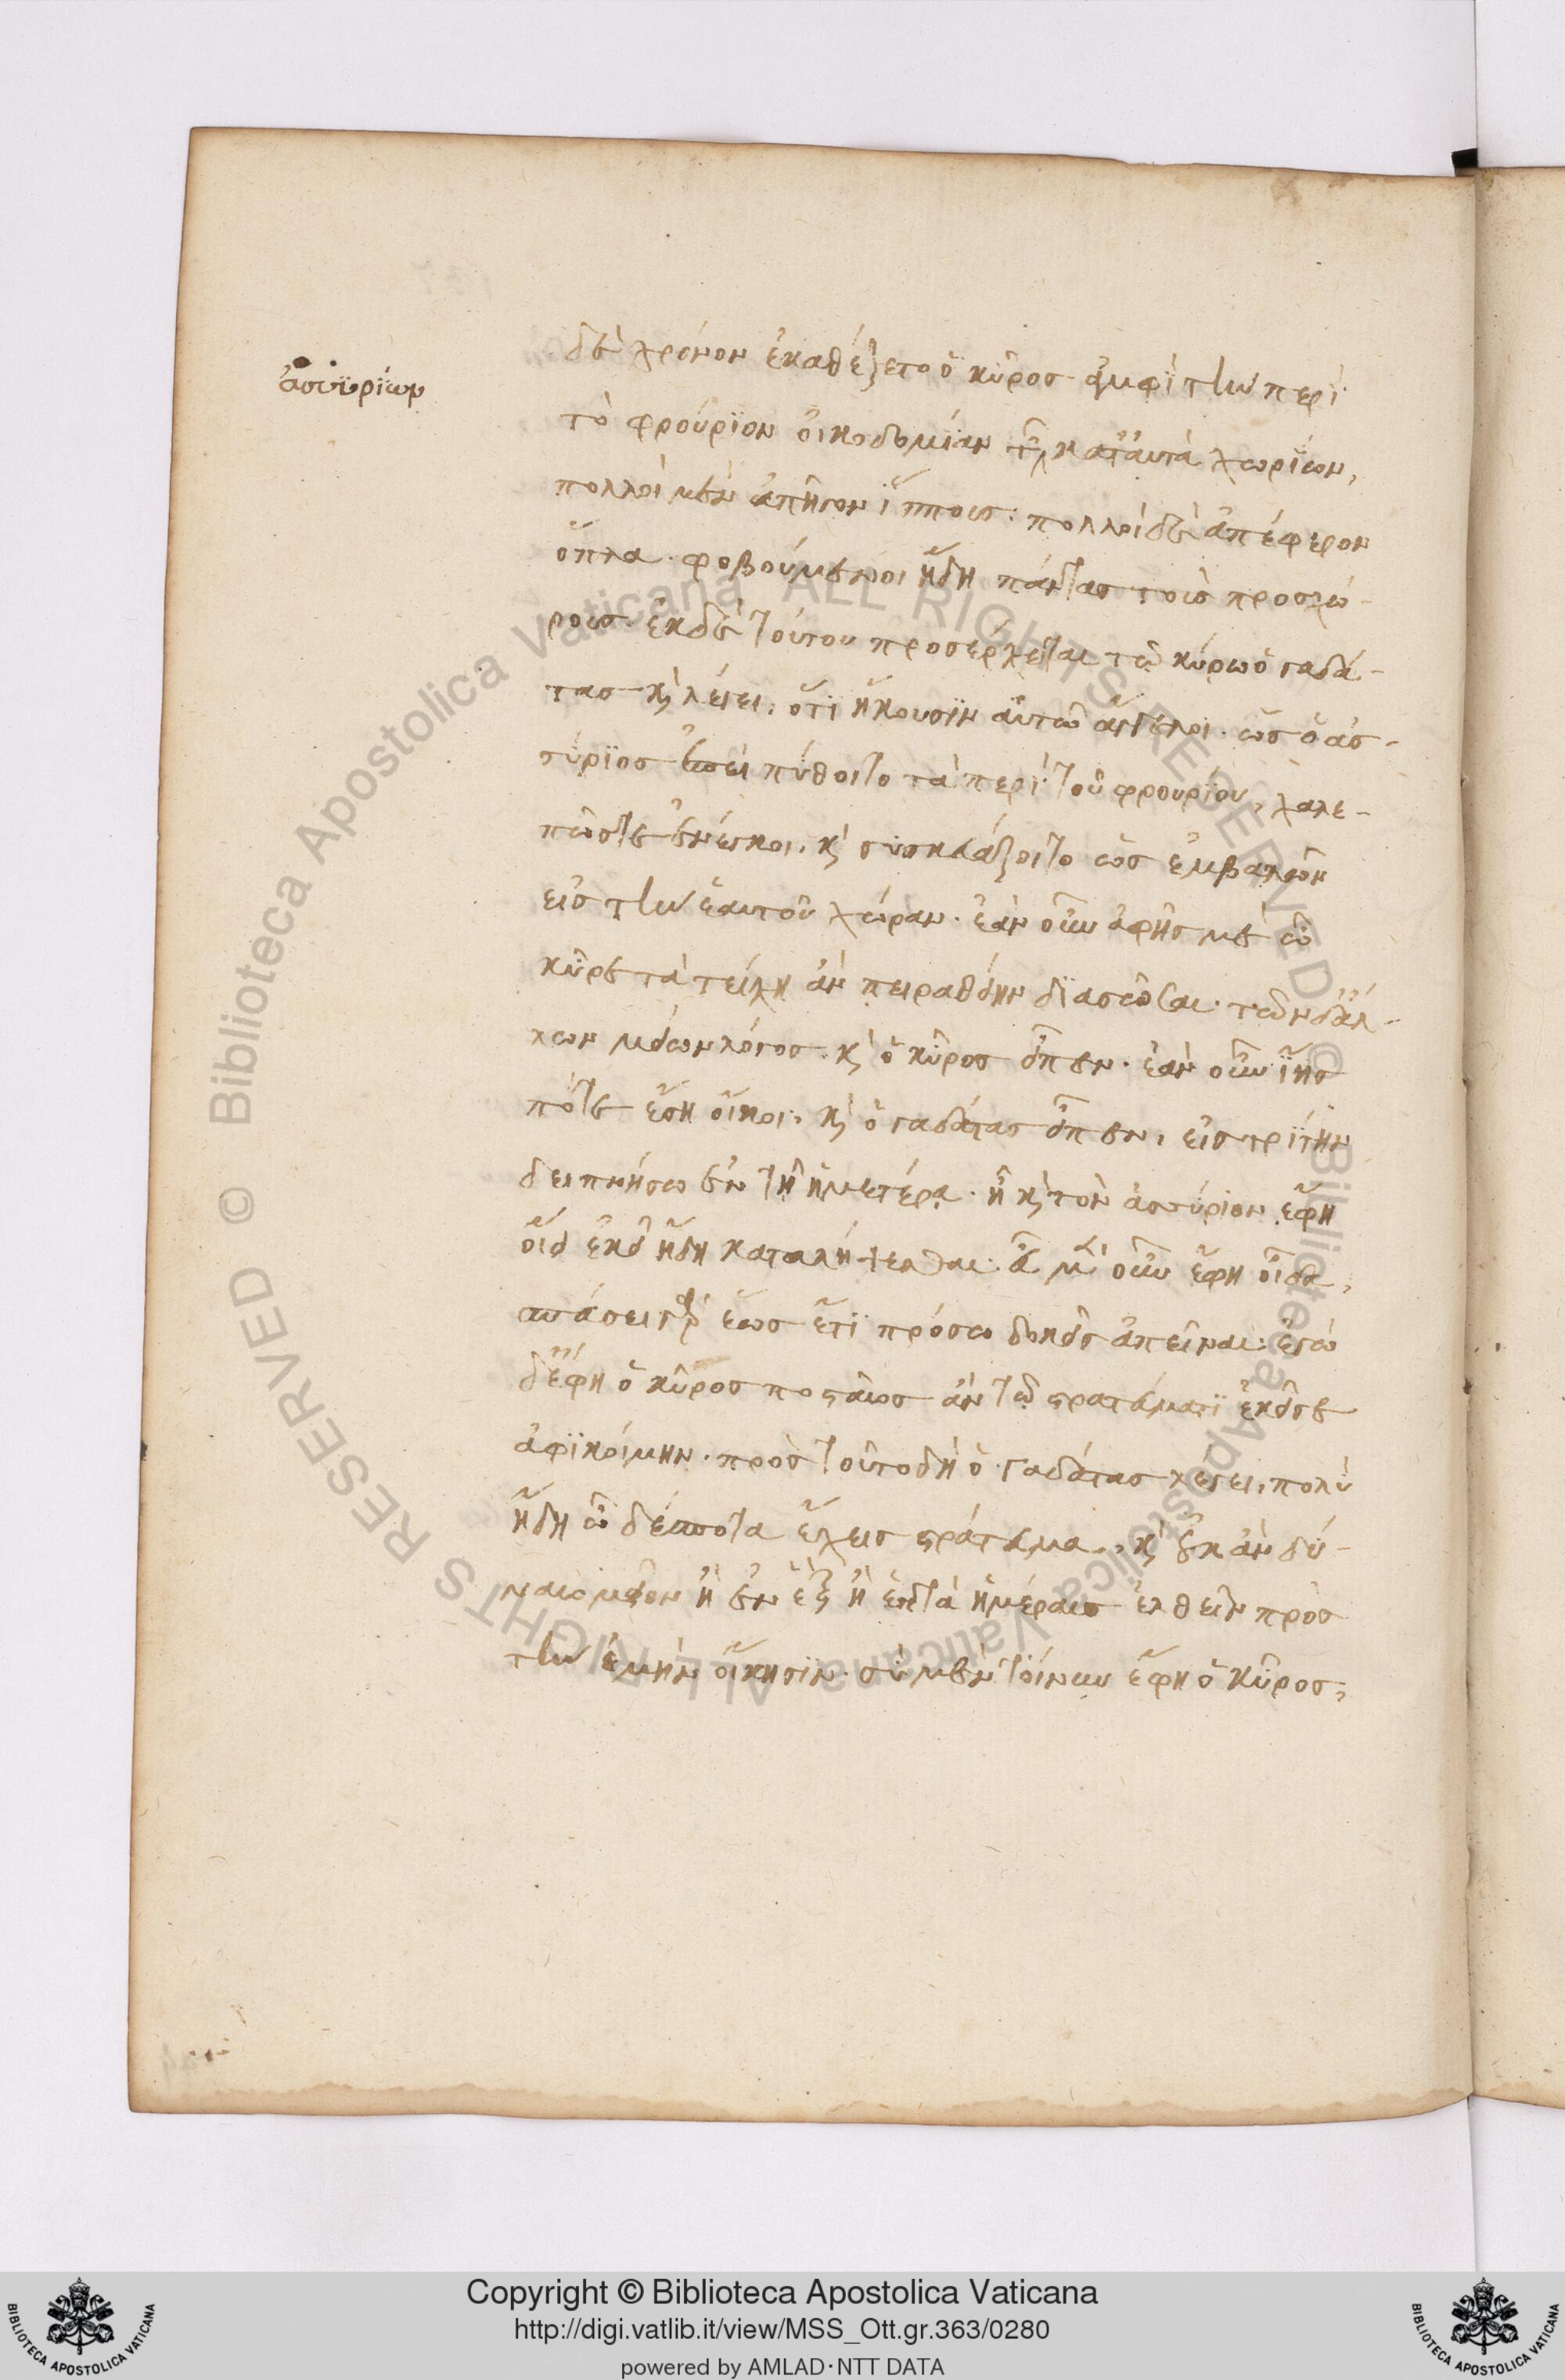 ἀσσυρίων
δὲ χρόνον ἐκαθέζετο ὁ κῦρος ἀμφὶ τὴν περὶ
τὸ φρούριον οἰκοδομίαν τῶν κατ' αὐτὰ χωρίων,
πολλοὶ μὲν ἀπῆγον ἵππους· πολλοὶ δὲ ἀπέφερον
ὅπλα· φοβούμενοι ἤδη πάντας τοὺς προσχώ-
ρους· ἐκ δὲ τούτου προσέρχεται τῶ κύρω ὁ γαδά-
τας καὶ λέγει, ὅτι ἥκουσιν αὐτῶ ἄγγελοι· ὡς ὁ ἀσ-
σύριος ἐπεὶ πύθοιτο τὰ περὶ τοῦ φρουρίου, χαλε-
πῶς τε ἐνέγκοι, καὶ συσκευάζοιτο ὡς ἐμβαλῶν
εἰς τὴν ἑαυτοῦ χώραν· ἐὰν οὖν ἀφῆς με ὦ
κῦρε τὰ τείχη ἂν πειραθείην διασῶσαι· τῶν δ' ἄλ-
λων μείων λόγος· καὶ ὁ κῦρος εἶπεν· ἐὰν οὖν ἴης
πότε ἔση οἴκοι; καὶ ὁ γαδάτας εἶπεν, εἰς τρίτην
δειπνήσω ἐν τῆ ἡμετέρα· ἦ καὶ τὸν ἀσσύριον ἔφη
οἴει ἐκεῖ ἤδη καταλήψεσθαι; εὖ μὲν οὖν ἔφη οἶδα,
σπεύσει γὰρ ἕως ἔτι πρόσω δοκεῖς ἀπεῖναι· ἐγὼ
δ' ἔφη ὁ κῦρος ποσταῖος ἂν τῷ στρατεύματι ἐκεῖσε
ἀφικοίμην· πρὸς τοῦτο δὴ ὁ γαδάτας λέγει, πολὺ
ἤδη ὦ δέσποτα ἔχεις στράτευμα, καὶ οὐκ ἂν δύ-
ναιο μεῖον ἢ ἐν ἓξ ἢ ἑπτὰ ἡμέραις ἐλθεῖν πρὸς
τὴν ἐμὴν οἴκησιν· σὺ μὲν τοίνυν ἔφη ὁ κῦρος,
© Biblioteca Apostolica Vaticana ALL RIGHTS RESERVED
© Biblioteca Apostolica Vaticana ALL RIGHTS RESERVED
Copyright © Biblioteca Apostolica Vaticana
http://digi.vatlib.it/view/MSS_Ott.gr.363/0280
powered by AMLAD·NTT DATA
BIBLIOTECA APOSTOLICA VATICANA
BIBLIOTECA APOSTOLICA VATICANA